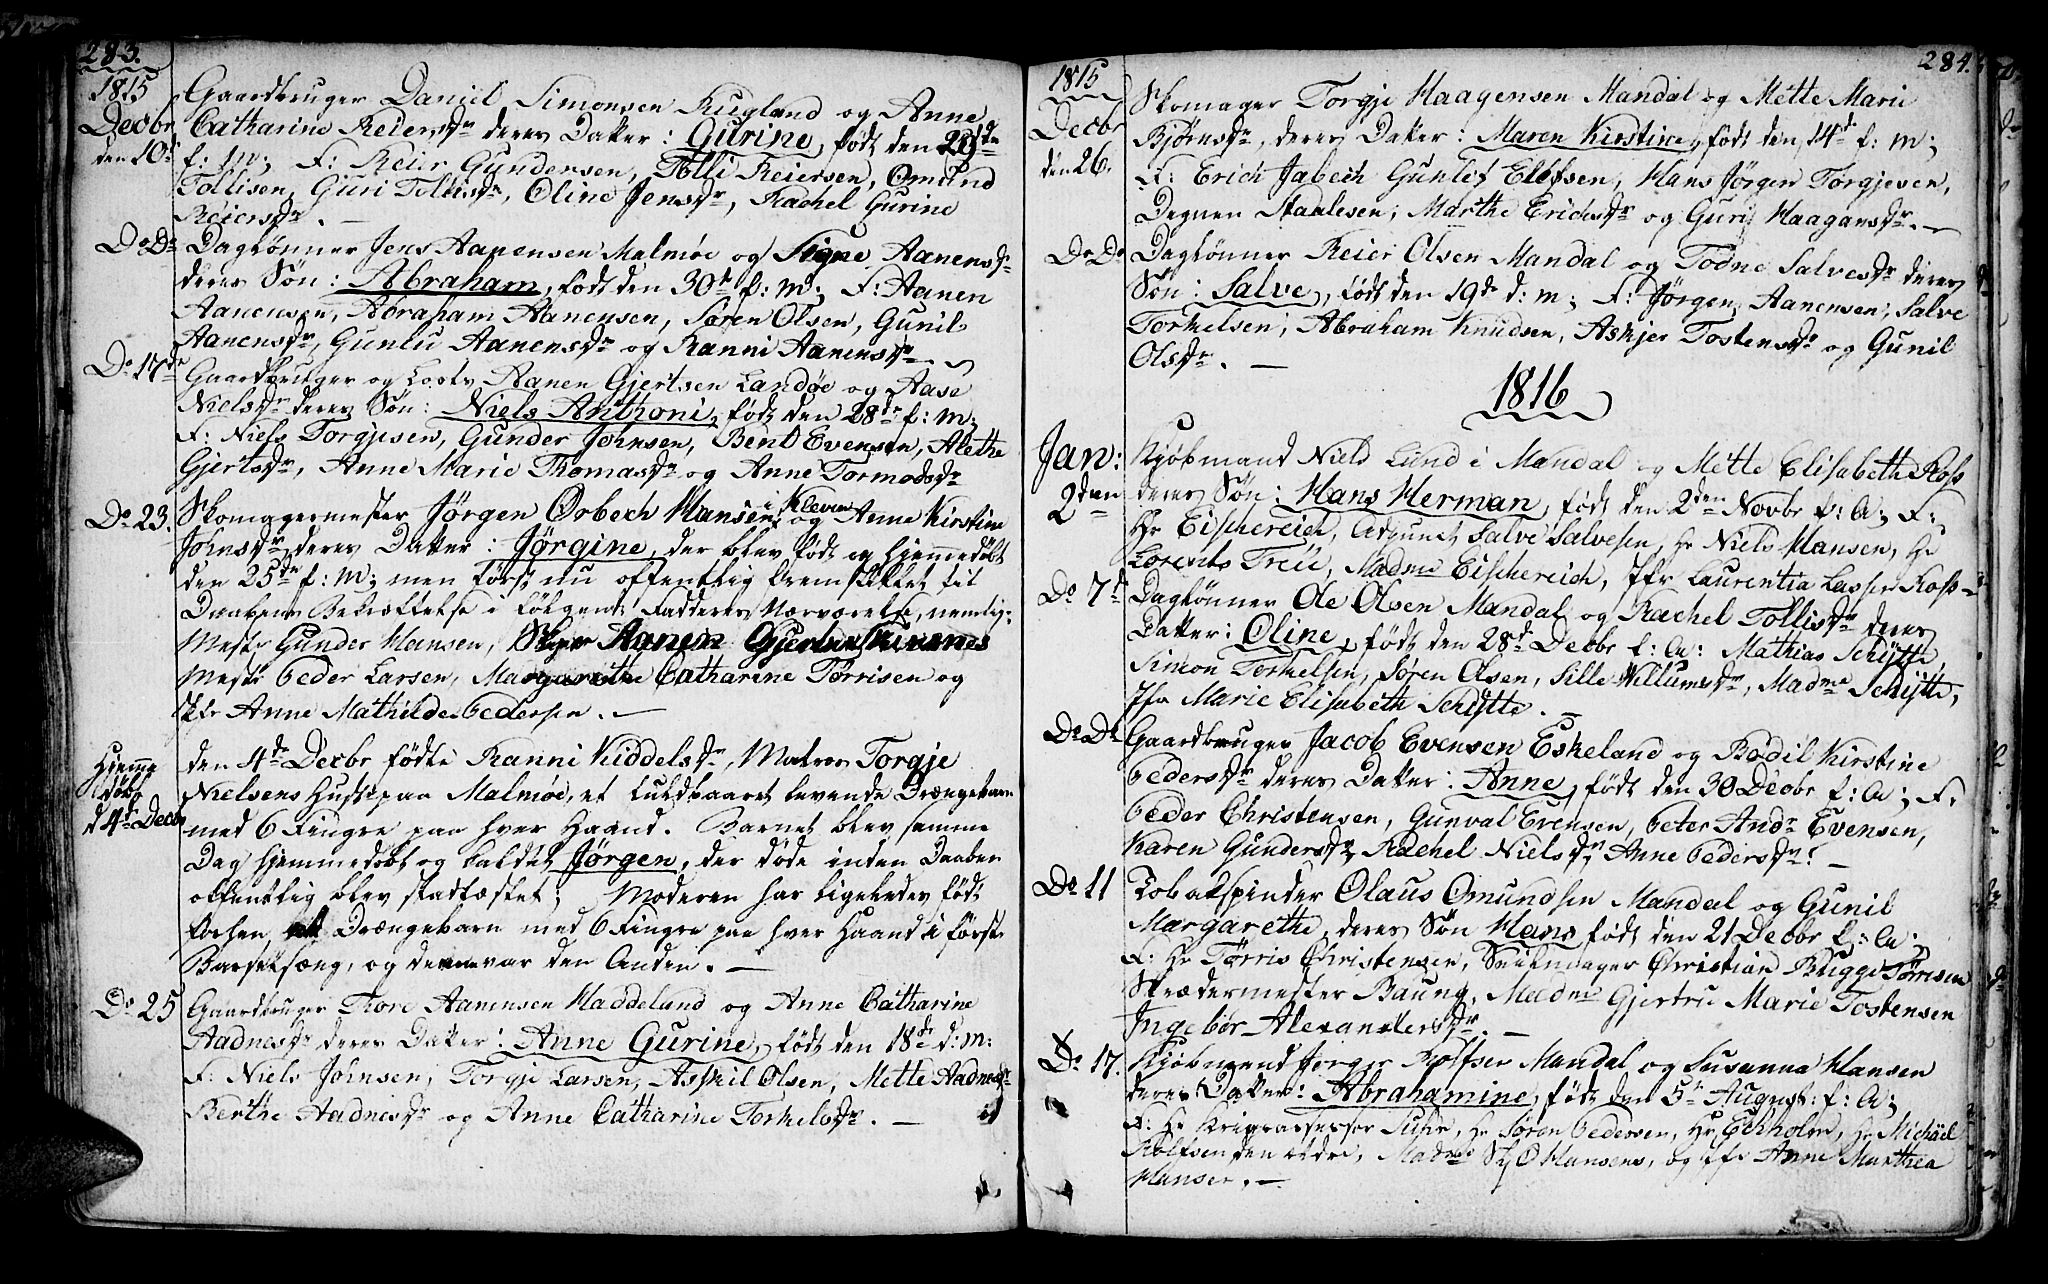 283.
1815
Decbr
den 10de
Gaardbruger Daniel Simonsen Kugland og Anne
Catharine Reiersdr deres Datter: Gurine, født den
f: m; F: Reier Gundersen, Tolli Reiersen, Omund
Tollisen, Guri Tollisdr, Oline Jensdr, Rachel Gurine
Reiersdr. –
Do Do Dagлønner Jens Aanensen Malmøe og Signe Aanensdr
deres Søn: Abraham, født den 30te f: m; F: Aanen
Aanensen, Abraham Aanensen, Søren Olsen, Gunil
Aanensdr, Gunlu Aanensdr og Ranni Aanensdr
Do 17de Gaardbruger og Loots Aanen Gjertsen Landøe og Aase
Nielsdr deres Søn: Niels Anthoni, født den 28de f: m;
F: Niels Torgjesen, Gunder Johnsen, Bent Evensen, Alethe
Gjertsdr, Anne Marie Thomasdr og Anne Tormodsdr
Do 23. Skomagermester Jørgen Orbech Hansen i Kleven og Anne Kirstine
Johnsdr deres Datter: Jørgine, der blev født og hjemmedøbt
den 25de f: m; men først nu offentlig fremstillet til
Daabens Bekræftelse i følgende Fadderes Nærværelse, nemlig:
Mestr Gunder Hansen, Aanen
Mestr Peder Larsen, Margarethe Catharine Tørrisen og
Jfr Anne Mathilde Pedersen. –
Hjemme
døbt
d 4de Decbr
den 4de Decbr fødte Ranni Kiddelsdr, Matros Torgje
Nielsens Hustrue paa Malmøe, et fuldbaaret levende Drængebarn
med 6 Fingre paa hver Haand. Barnet blev samme
Dag hjemmedøbt og kaldet Jørgen, der døde inden Daaben
offentlig blev stadfæstet; Moderen har ligeledes født
forhen et Drængebarn med 6 Fingre paa hver Haand i første
Barselsæng, og denne var den Anden. –
Do 25 Gaardbruger Thore Aanensen Haddeland og Anne Catharine
Aadnesdr deres Datter: Anne Gurine, født den 18de d: m:
F: Niels Johnsen, Torgje Larsen, Askil Olsen, Mette Aadnesdr
Berthe Aadnesdr og Anne Catharine Torkelsdr. –
284.
1815
Decbr
den 26.
Skomager Torgje Haagensen Mandal og Mette Marie
Bjørnsdr, deres Datter: Maren Kirstine, født den 14de f: m;
F: Erich Jabech Gunlef Elefsen, Hans Jørgen Torgjesen,
Degnen Staalesen; Marthe Erichsdr og Guri Haagensdr. –
Do Do Dagлønner Reier Olsen Mandal og Todne Salvesdr deres
Søn: Salve, født den 19de d: m; F: Jørgen Aanensen; Salve
Torkelsen; Abraham Knudsen, Askjer Tostensdr og Gunil
Olsdr. –
1816
Jan:
2den
Kjøbmand Niels Lund i Mandal og Mette Elisabeth Ross
deres Søn: Hans Herman, født den 2den Novbr f: A; F:
Hr Eischereich, Adjunct Salve Salvesen, Hr Niels Hansen, Hr
Lorents Treü, Madme Eischereich, Jfr Laurentia Lasson Ross –
Do 7de Dagлønner Ole Olsen Mandal og Rachel Tollisdr deres
Datter: Oline, født den 28de Decbr f: A: Mathias Schytte,
Simon Torkelsen, Søren Olsen, Sille Willumsdr, Madme Schytte,
Jfr Marie Elisabeth Schytte. –
Do Do Gaardbruger Jacob Evensen Eskeland og Bodil Kirstine
Pedersdr deres Datter: Anne, født den 30 Decbr f: A; F:
Peder Christensen, Gunval Evensen, Peter Andr Evensen,
Karen Gundersdr, Rachel Nielsdr, Anne Pedersdr. –
Do 11 Tobakspinder Olaus Omundsen Mandal og Gunil
Margarethe, deres Søn Hans født den 21 Decbr f: A;
F: Hr Tørris Christensen, Christian Bugge Tørrisen
Skrædermester Baung, Madme Gjertru Marie Tostensen
Ingebør Alexandersdr. –
Do 17. Kjøbmand Jørger Rolfsen Mandal og Susanna Hansen
deres Datter: Abrahamine, født den 5te August: f: A;
F: Hr Krigsassessor Suhr, Hr Søren Pedersen, Hr Eckholm, Hr Michael
Rolfsen den ældre; Madme Hansens, og Jfr Anne Marthea
Hansen. –